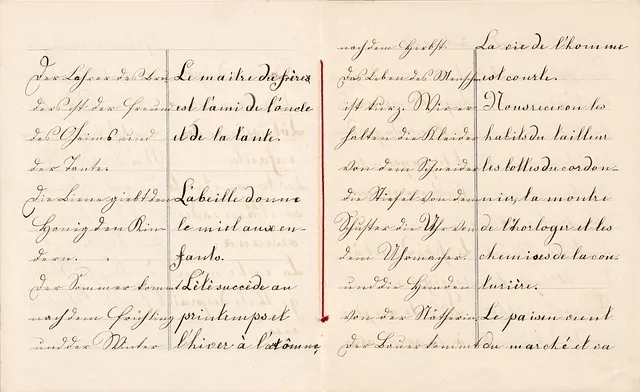 Der Lehrer des Bru- Le maitre du frère
ders ist der Freund est l'ami de l'oncle
des Oheims und et de la tante.
der Tante.
Die Biene giebt den L'abeille donne
Honig den Kin- le miel aux en-
dern. fants.
Der Sommer kommt L'été succède au
nach dem Frühling printemps et
und der Winter l'hiver à l'atômne,
nach dem Herbst. La vie de l'homme
Das Leben des Mensch est courte.
ist kurz. Wir er- Nous recevon les
halten die Kleider habits du tailleur
von dem Schneider les bottes du cordon-
die Stiefel von dem nier, la montre
Schuster die Uhr von de l'horloger et les
dem Uhrmacher. chemises de la cou-
und die Hemden turière.
von der Nätherin Le paisen vient
Der Bauer kommt du marché et va